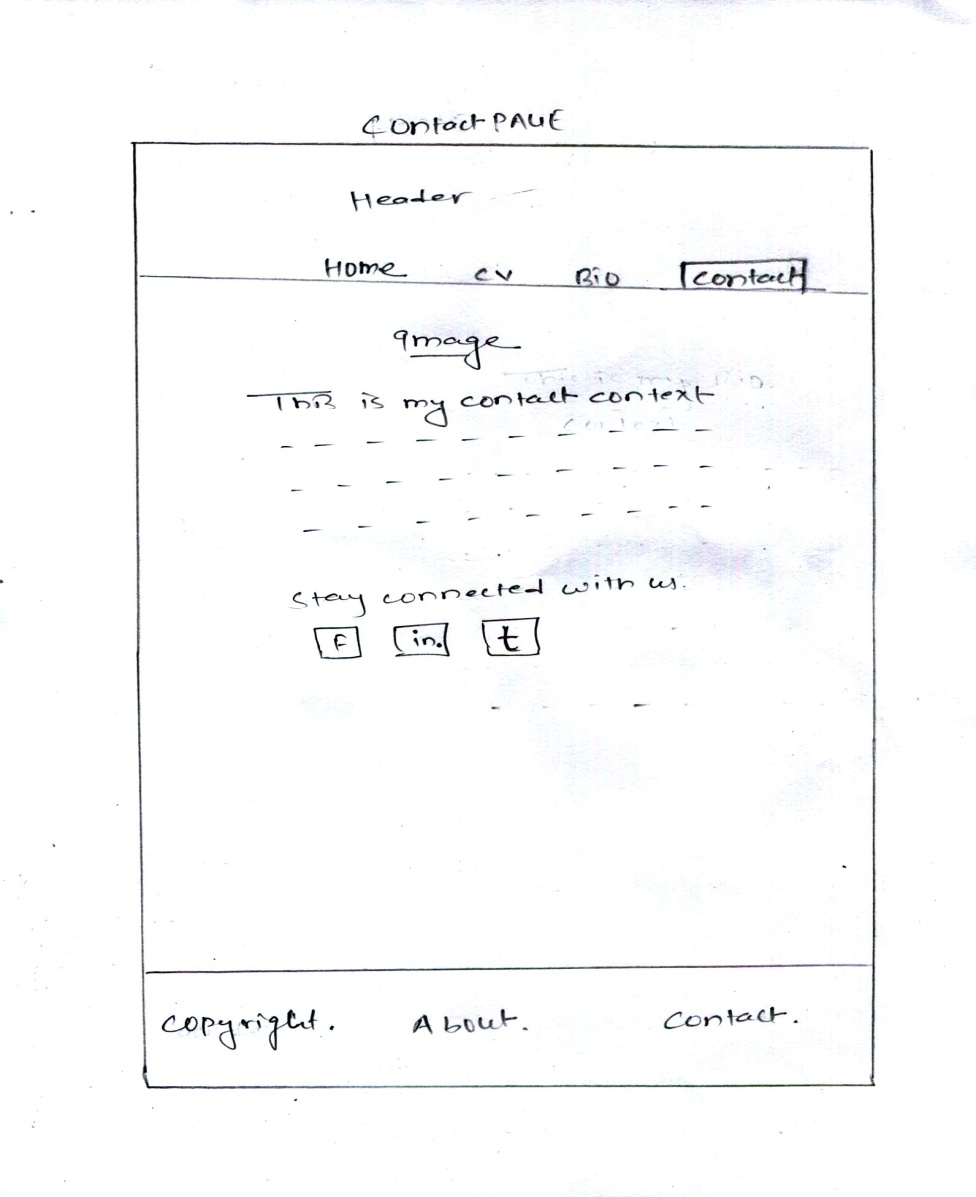 Contact PAGE
Header
Home CV Bio Contact
Image
This is my contact context
Stay connected with us.
f in. t
Copyright. About. Contact.